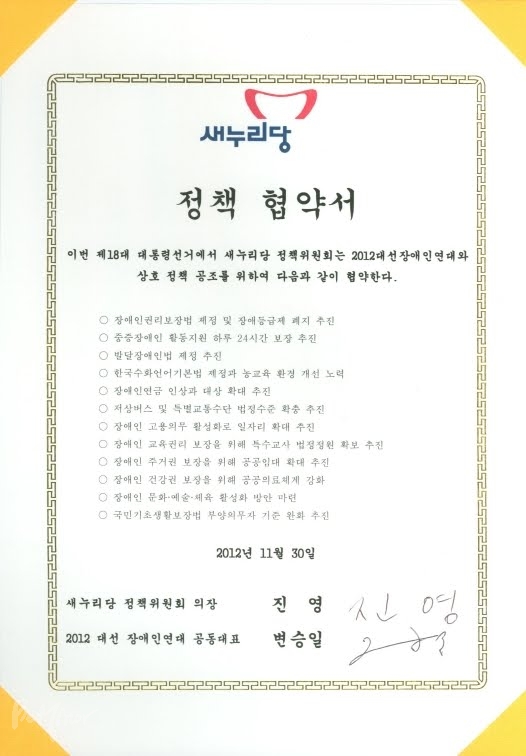 새누리당
정책 협약서
이번 제18대 대통령선거에서 새누리당 정책위원회는 2012대선장애인연대와
상호 정책 공조를 위하여 다음과 같이 협약한다.
○ 장애인권리보장법 제정 및 장애등급제 폐지 추진
○ 중증장애인 활동지원 하루 24시간 보장 추진
○ 발달장애인법 제정 추진
○ 한국수화언어기본법 제정과 농교육 환경 개선 노력
○ 장애인연금 인상과 대상 확대 추진
○ 저상버스 및 특별교통수단 법정수준 확충 추진
○ 장애인 고용의무 활성화로 일자리 확대 추진
○ 장애인 교육권리 보장을 위해 특수교사 법정정원 확보 추진
○ 장애인 주거권 보장을 위해 공공임대 확대 추진
○ 장애인 건강권 보장을 위해 공공의료체계 강화
○ 장애인 문화·예술·체육 활성화 방안 마련
○ 국민기초생활보장법 부양의무자 기준 완화 추진
2012년 11월 30일
새누리당 정책위원회 의장 진 영 진 영
2012 대선 장애인연대 공동대표 변승일